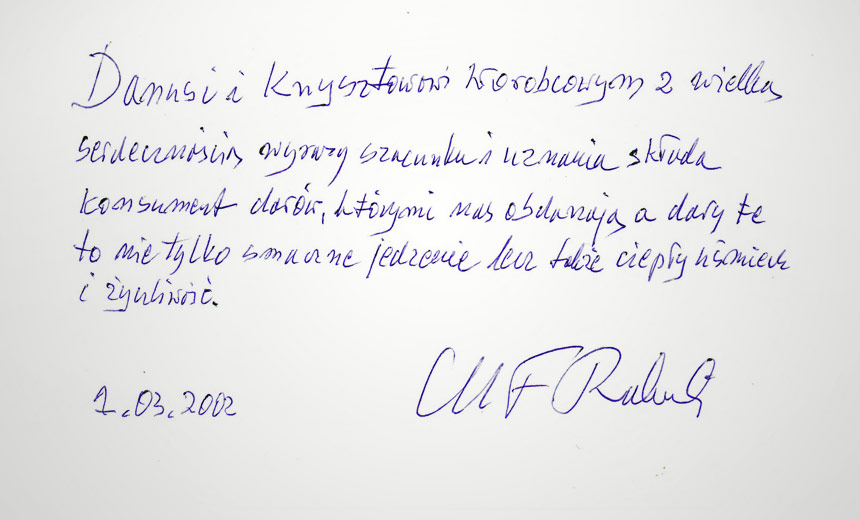 Danusi i Krzysztowowi Worobcowym z wielką
serdecznością wyrazy szacunku i uznania składa
konsument darów, którymi nas obdarzają a dary te
to nie tylko smaczne jedzenie lecz także ciepły uśmiech
i życzliwość.
1.03.2002
MF Rakowski